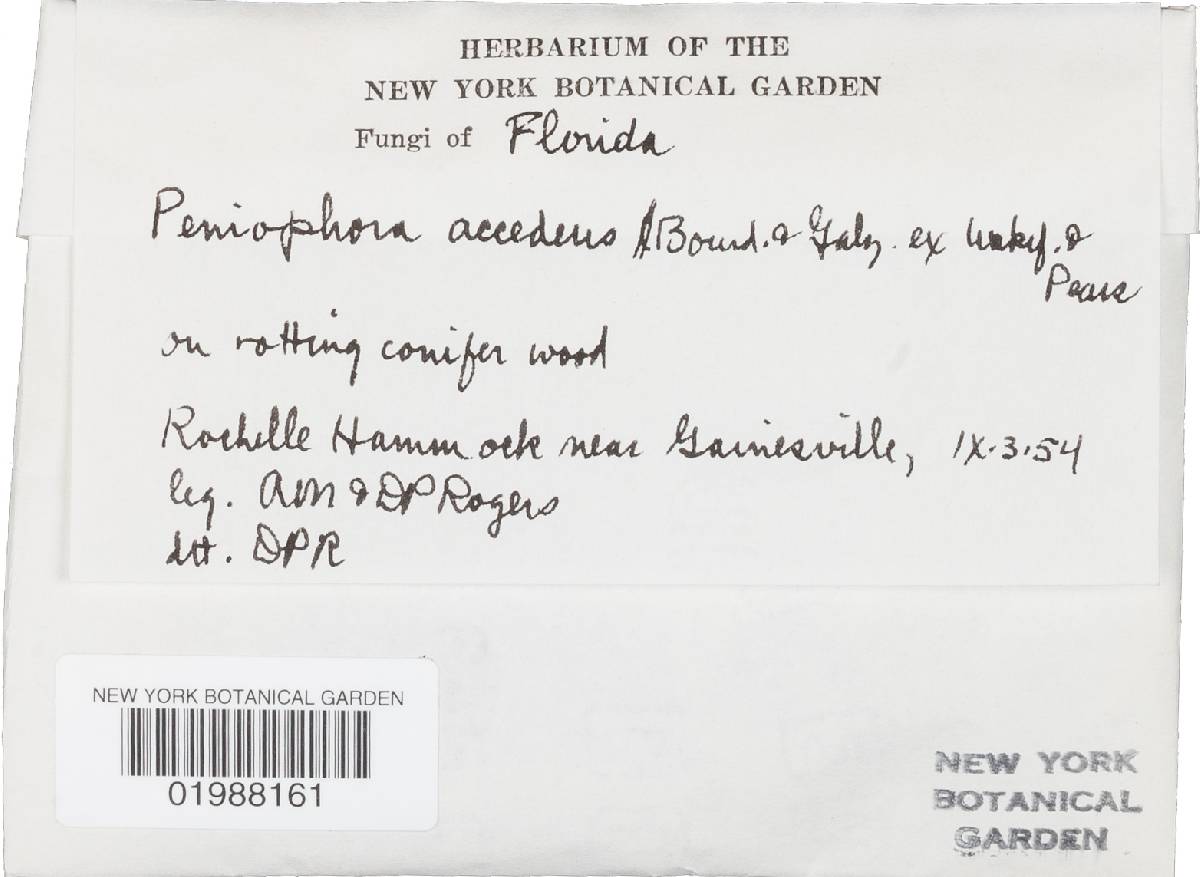 HERBARIUM OF THE
NEW YORK BOTANICAL GARDEN
Fungi of Florida
Peniophora accedens Bourd. & Galz. ex Wakef. &
Pears
on rotting conifer wood
Rochelle Hammock near Gainesville, IX.3.54
leg. AM & DP Rogers
det. DPR
NEW YORK BOTANICAL GARDEN
01988161
NEW YORK
BOTANICAL
GARDEN